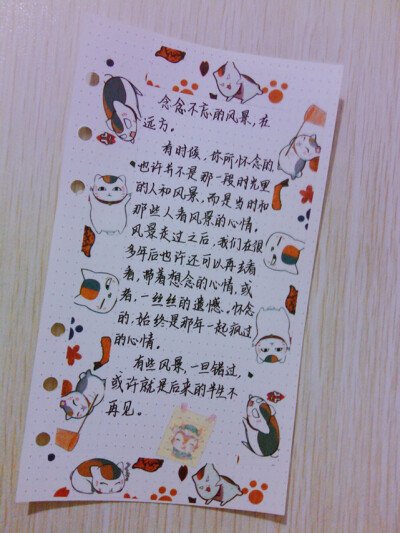 念念不忘的风景，在
远方。
有时候，你所怀念的
也许并不是那一段时光里
的人和风景，而是当时和
那些人看风景的心情。
风景走过之后，我们在很
多年后也许还可以再去看
看，带着想念的心情，或
者，一丝丝的遗憾。怀念
的，始终是那年一起疯过
的心情。
有些风景，一旦错过，
或许就是后来的半生不
再见。